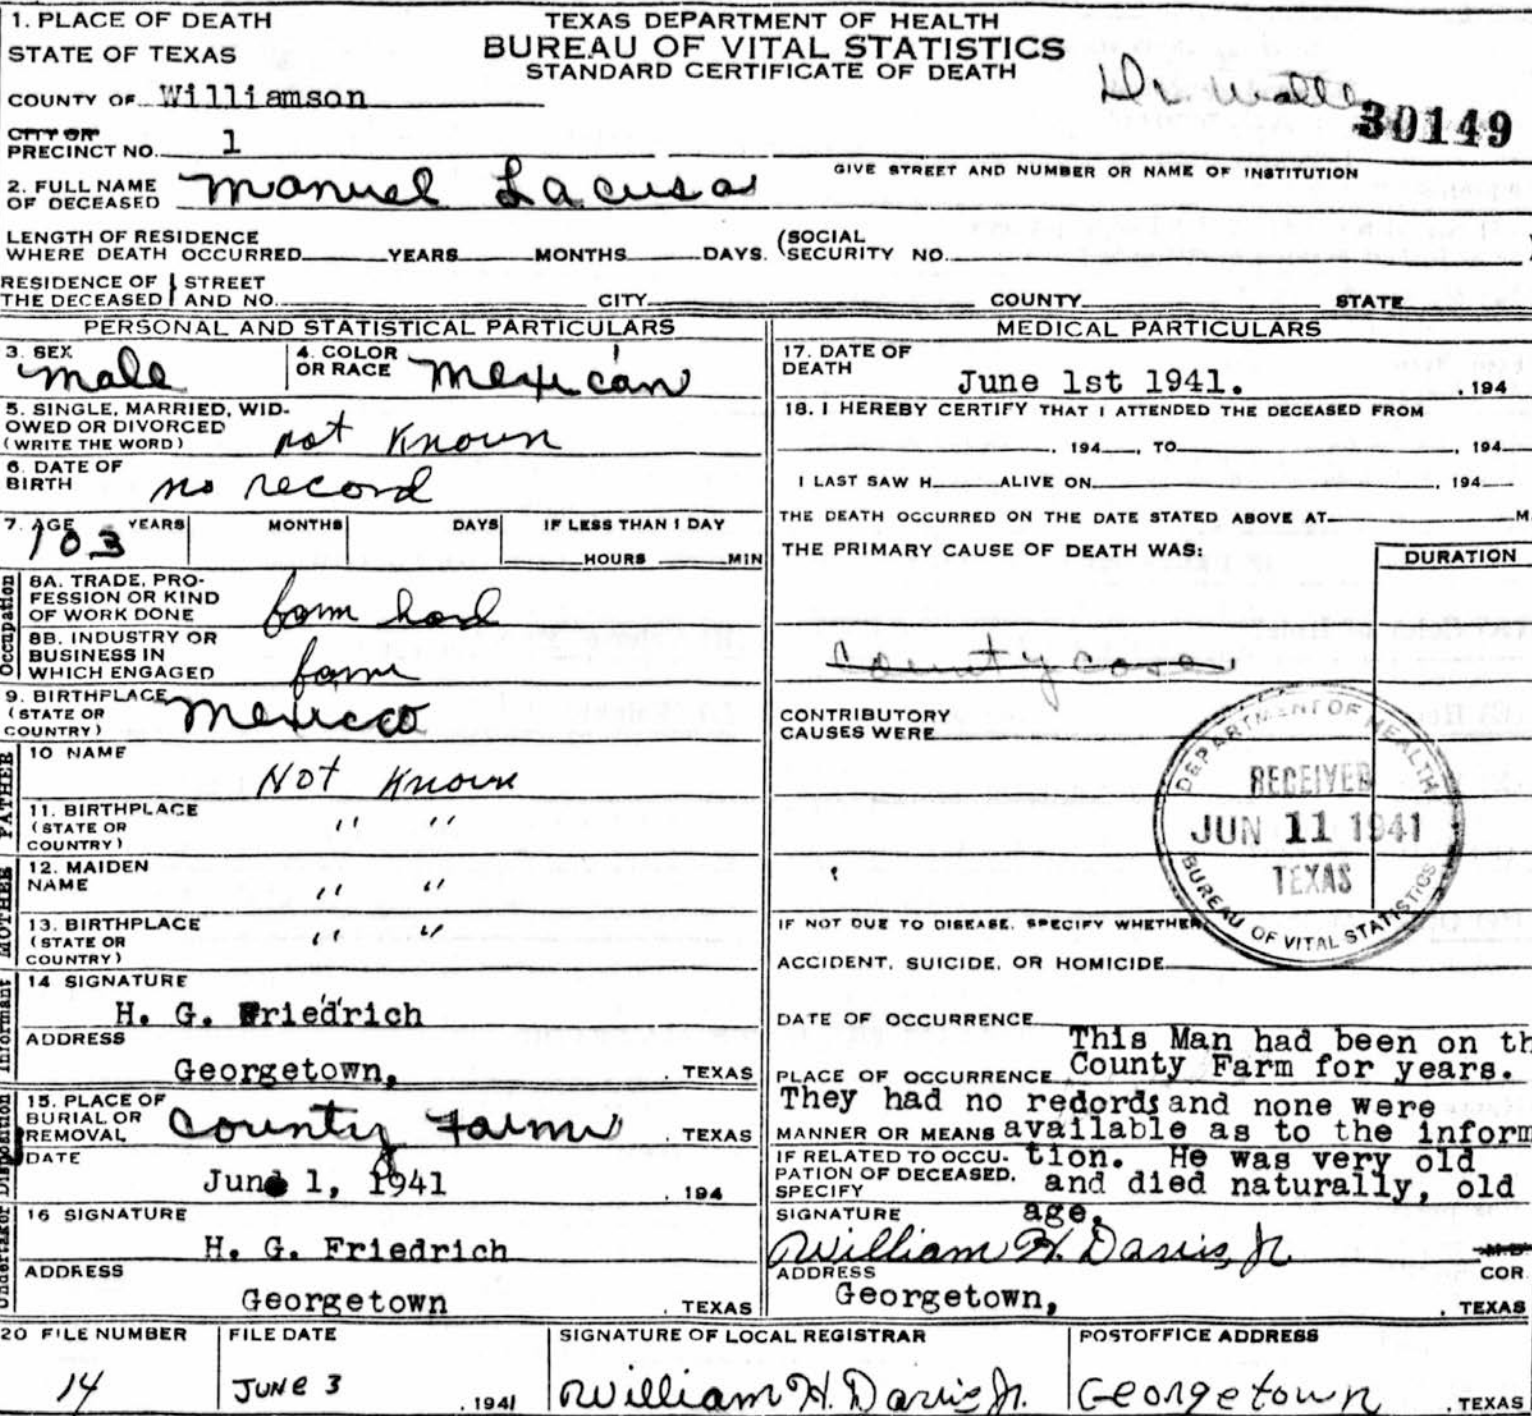 1. PLACE OF DEATH
STATE OF TEXAS
TEXAS DEPARTMENT OF HEALTH
BUREAU OF VITAL STATISTICS
STANDARD CERTIFICATE OF DEATH
COUNTY OF Williamson
Dr.
30149
CITY OR
PRECINCT NO. 1
GIVE STREET AND NUMBER OR NAME OF INSTITUTION
2. FULL NAME
OF DECEASED Manuel Lacusa
LENGTH OF RESIDENCE
WHERE DEATH OCCURRED YEARS MONTHS DAYS. (SOCIAL
SECURITY NO.
RESIDENCE OF STREET
THE DECEASED AND NO. CITY COUNTY STATE
PERSONAL AND STATISTICAL PARTICULARS
3. SEX
male
4. COLOR
OR RACE Mexican
5. SINGLE, MARRIED, WID-
OWED OR DIVORCED
(WRITE THE WORD) not Known
6. DATE OF
BIRTH no record
7. AGE YEARS MONTHS DAYS IF LESS THAN 1 DAY
103 HOURS MIN
Occupation
8A. TRADE, PRO-
FESSION OR KIND
OF WORK DONE farm hand
8B. INDUSTRY OR
BUSINESS IN
WHICH ENGAGED farm
9. BIRTHPLACE
(STATE OR
COUNTRY) Mexico
FATHER
10 NAME
Not Known
11. BIRTHPLACE
(STATE OR
COUNTRY) " "
MOTHER
12. MAIDEN
NAME " "
13. BIRTHPLACE
(STATE OR
COUNTRY) " "
Informant
14 SIGNATURE
H. G. Friedrich
ADDRESS
Georgetown, , TEXAS
Disposition
15. PLACE OF
BURIAL OR
REMOVAL County Farm , TEXAS
DATE
June 1, 1941 , 194
Undertaker
16 SIGNATURE
H. G. Friedrich
ADDRESS
Georgetown , TEXAS
MEDICAL PARTICULARS
17. DATE OF
DEATH
June 1st 1941. , 194
18. I HEREBY CERTIFY THAT I ATTENDED THE DECEASED FROM
, 194 , TO , 194
I LAST SAW H ALIVE ON , 194
THE DEATH OCCURRED ON THE DATE STATED ABOVE AT M
THE PRIMARY CAUSE OF DEATH WAS: DURATION
County case
CONTRIBUTORY
CAUSES WERE
DEPARTMENT OF HEALTH
RECEIVED
JUN 11 1941
TEXAS
BUREAU OF VITAL STATISTICS
IF NOT DUE TO DISEASE, SPECIFY WHETHER
ACCIDENT, SUICIDE, OR HOMICIDE
DATE OF OCCURRENCE
This Man had been on th
PLACE OF OCCURRENCE County Farm for years.
They had no redords and none were
MANNER OR MEANS available as to the inform
IF RELATED TO OCCU-
PATION OF DECEASED, tion. He was very old
SPECIFY and died naturally, old
SIGNATURE age.
William H. Davis, Jr. M.D.
ADDRESS COR.
Georgetown, , TEXAS
20 FILE NUMBER FILE DATE SIGNATURE OF LOCAL REGISTRAR POSTOFFICE ADDRESS
14 June 3 , 1941 William H. Davis Jr. Georgetown , TEXAS